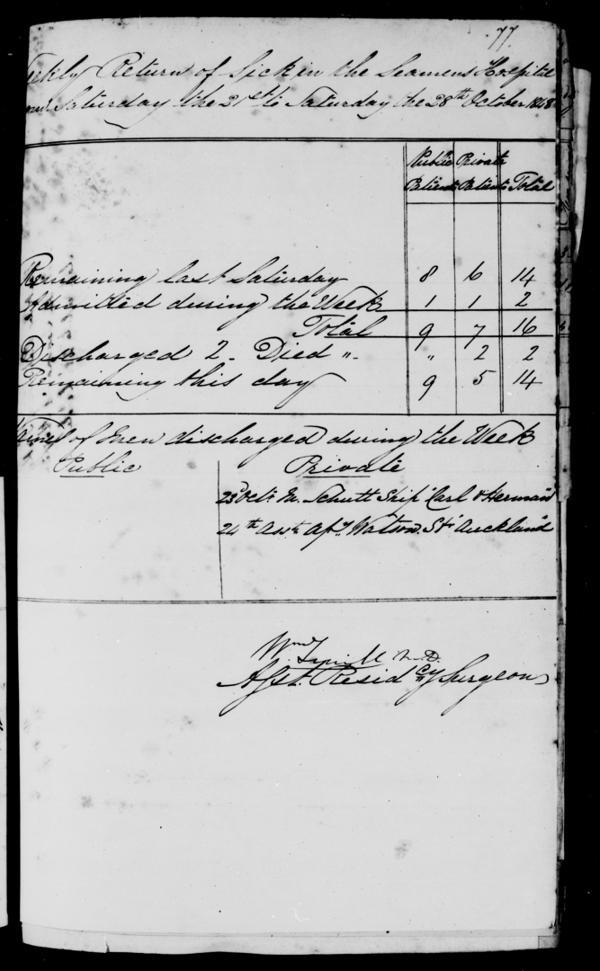 77
Weekly Return of Sick in the Seamens Hospital
Saturday the 21st to Saturday the 28th October 1848
Public Patients Private Patients Total
Remaining last Saturday 8 6 14
Admitted during the Week 1 1 2
Total 9 7 16
Discharged 2. Died ". " 2 2
Remaining this day 9 5 14
of Men discharged during the Week
Public Private
23d Octr. Schutt Ship "Carl & Herman"
24th Watson. Str "Auckland"
Wm M.D.
Asst. Residcy Surgeon